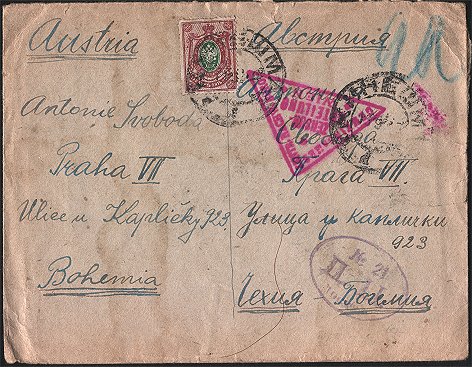 Austria
Antonie Svoboda
Praha VII
Ulice u Kapličky 923.
Bohemia
Австрия
Свобода
Прага VII.
Улица у каплички
923
Чехия Богемия
№ 21